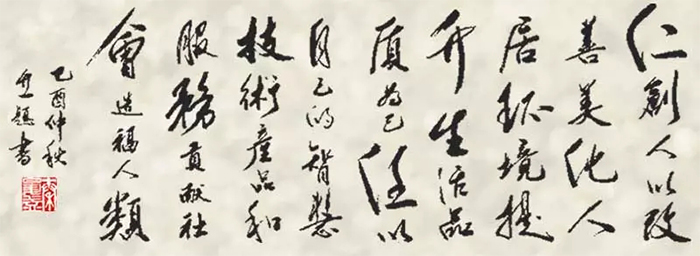 仁創人以改
善美化人
居环境提
升生活品
质為己任以
自己的智慧
技術產品和
服務貢献社
會造福人類
乙酉仲秋
書